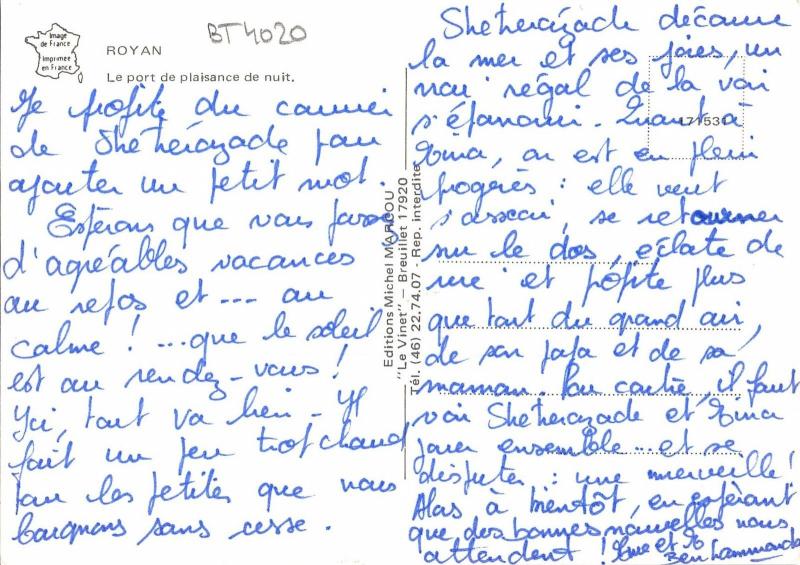 Image
de France
Imprimée
en France
ROYAN
BT 4020
Le port de plaisance de nuit.
Je profite du courrier
de Sheherazade pour
ajouter un petit mot.
Espérons que vous passez
d'agréables vacances
au repos et --- au
calme ! ...que le soleil
est au rendez-vous !
Ici, tout va bien - Il
fait un peu trop chaud
pour les petites que nous
baignons sans cesse.
Editions Michel MARCOU
"Le Vinet" - Breuillet 17920
Tél. (46) 22.74.07 - Rep. interdite
Sheherazade découvre
la mer et ses joies, un
vrai régal de la voir
s'épanouir. Quant à
171531
Tina, on est en plein
progrès : elle veut
s'asseoir, se retourner
sur le dos, éclate de
rire et profite plus
que tout du grand air,
de son papa et de sa
maman. Par contre, il faut
voir Sheherazade et Tina
jouer ensemble ... et se
disputer : une merveille !
Alors à bientôt, en espérant
que des bonnes nouvelles nous
attendent ! Mme et Mr
Benhammouda